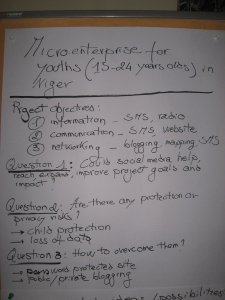 Microenterprise for
youths (15-24 years olds) in
Niger
Project objectives:
1 information - SMS, radio
2 communication - SMS, website
3 networking - blogging, mapping, SMS
Question 1: Could social media help,
reach, improve project goals and
impact?
Question 2: Are there any protection or
privacy risks?
→ child protection
→ loss of data
Question 3: How to overcome them?
→ word protected site
→ public/private blogging
(possibilities